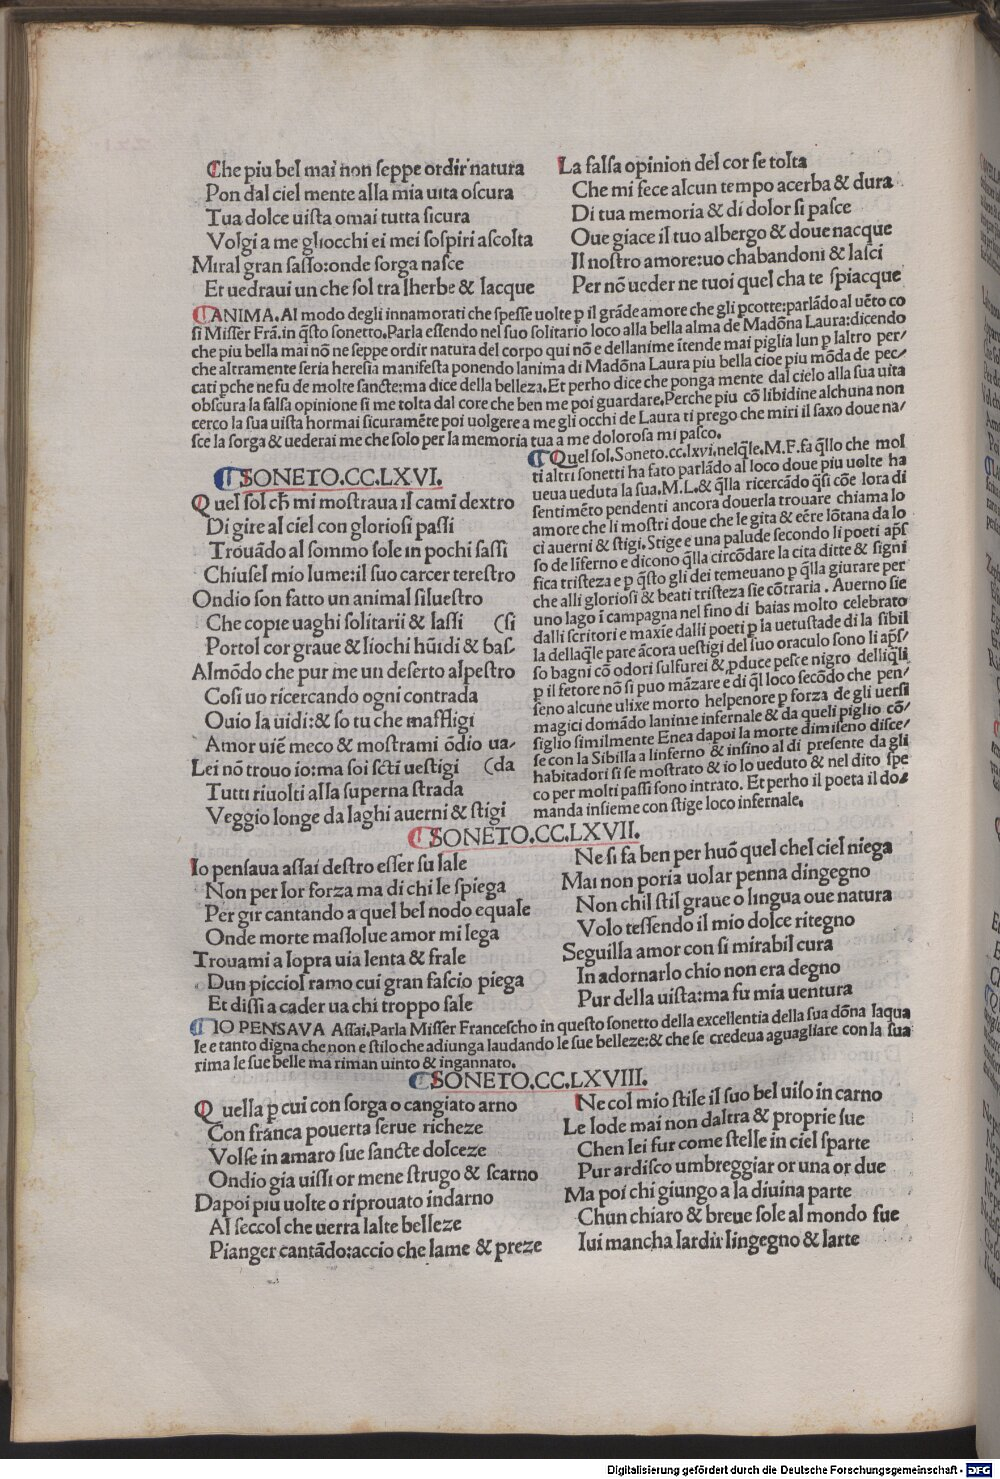 Che piu bel mai non seppe ordir natura
Pon dal ciel mente alla mia uita oscura
Tua dolce uista omai tutta sicura
Volgi a me gliocchi ei mei sospiri ascolta
Miral gran sasso:onde sorga nasce
Et uedraui un che sol tra lherbe & lacque
La falsa opinion del cor se tolta
Che mi fece alcun tempo acerba & dura
Di tua memoria & di dolor si pasce
Oue giace il tuo albergo & doue nacque
Il nostro amore:uo chabandoni & lasci
Per nō ueder ne tuoi quel cha te spiacque
ANIMA. Al modo degli innamorati che spesse uolte p il grāde amore che gli pcotte:parlādo al uēto co
si Misser Frā.in q̄sto sonetto.Parla essendo nel suo solitario loco alla bella alma de Madōna Laura:dicendo
che piu bella mai nō ne seppe ordir natura del corpo qui nō e dellanime ītende mai piglia lun p laltro per/
che altramente seria heresia manifesta ponendo lanima di Madōna Laura piu bella cioe piu mōda de pec/
cati pche ne fu de molte sancte:ma dice della belleza.Et perho dice che ponga mente dal cielo alla sua uita
obscura la falsa opinione si me tolta dal core che ben me poi guardare.Perche piu cō libidine alchuna non
cerco la sua uista hormai sicuramēte poi uolgere a me gli occhi de Laura ti prego che miri il saxo doue na/
sce la sorga & uederai me che solo per la memoria tua a me dolorosa mi pasco.
SONETO.CC.LXVI.
Quel sol ch̄ mi mostraua il camī dextro
Di gire al ciel con gloriosi passi
Trouādo al sommo sole in pochi sassi
Chiusel mio lume:il suo carcer terestro
Ondio son fatto un animal siluestro
Che copie uaghi solitarii & lassi (si
Portol cor graue & liochi hūidi & bas-
Almōdo che pur me un deserto alpestro
Cosi uo ricercando ogni contrada
Ouio la uidi:& so tu che maffligi
Amor uiē meco & mostrami ōdio ua/
Lei nō trouo io:ma soi scti uestigi (da
Tutti riuolti alla superna strada
Veggio longe da laghi auerni & stigi
Quel sol.Soneto.cc.lxvi.nelq̄le.M.F.fa q̄llo che mol
ti altri sonetti ha fato parlādo al loco doue piu uolte ha
ueua ueduta la sua.M.L.& q̄lla ricercādo q̄si cōe lora di
sentimēto pendenti ancora douerla trouare chiama lo
amore che li mostri doue che le gita & eēre lōtana da lo
ci auerni & stigi.Stige e una palude secondo li poeti aps̄
so de līferno e dicono q̄lla circōdare la cita ditte & signi
fica tristeza e p q̄sto gli dei temeuano p q̄lla giurare per
che alli gloriosi & beati tristeza sie cōtraria. Auerno sie
uno lago ī campagna nel fino di baias molto celebrato
dalli scritori e maxie dalli poeti p la uetustade di la sibil
la dellaq̄le pare ācora uestigi del suo oraculo sono li aps̄/
so bagni cō odori sulfurei & pduce pesce nigro delliq̄li
p il fetore nō si puo māzare e di q̄l loco secōdo che pen/
seno alcune ulixe morto helpenore p forza de gli uersi
magici domādo lanime infernale & da queli piglio cō/
siglio similmente Enea dapoi la morte dimiseno disce/
se con la Sibilla a linferno & infino al di presente da gli
habitadori si se mostrato & io lo ueduto & nel dito spe
co per molti passi sono intrato. Et perho il poeta il do/
manda insieme con stige loco infernale.
SONETO.CC.LXVII.
Io pensaua assai destro esser su lale
Non per lor forza ma di chi le spiega
Per gir cantando a quel bel nodo equale
Onde morte massolue amor mi lega
Trouami a lopra uia lenta & frale
Dun picciol ramo cui gran fascio piega
Et dissi a cader ua chi troppo sale
Ne si fa ben per huō quel chel ciel niega
Mai non poria uolar penna dingegno
Non chil stil graue o lingua oue natura
Volo tessendo il mio dolce ritegno
Seguilla amor con si mirabil cura
In adornarlo chio non era degno
Pur della uista:ma fu mia uentura
IO PENSAVA Assai.Parla Misser Francescho in questo sonetto della excellentia della sua dōna laqua
le e tanto digna che non e stilo che adiunga laudando le sue belleze:& che se credeua aguagliare con la sua
rima le sue belle ma riman uinto & ingannato.
SONETO.CC.LXVIII.
Quella p cui con sorga o cangiato arno
Con franca pouerta serue richeze
Volse in amaro sue sancte dolceze
Ondio gia uissi or mene strugo & scarno
Dapoi piu uolte o riprouato indarno
Al seccol che uerra lalte belleze
Pianger cantādo:accio che lame & preze
Ne col mio stile il suo bel uiso in carno
Le lode mai non daltra & proprie sue
Chen lei fur come stelle in ciel sparte
Pur ardisco umbreggiar or una or due
Ma poi chi giungo a la diuina parte
Chun chiaro & breue sole al mondo fue
Iui mancha lardir lingegno & larte
Digitalisierung gefördert durch die Deutsche Forschungsgemeinschaft - DFG